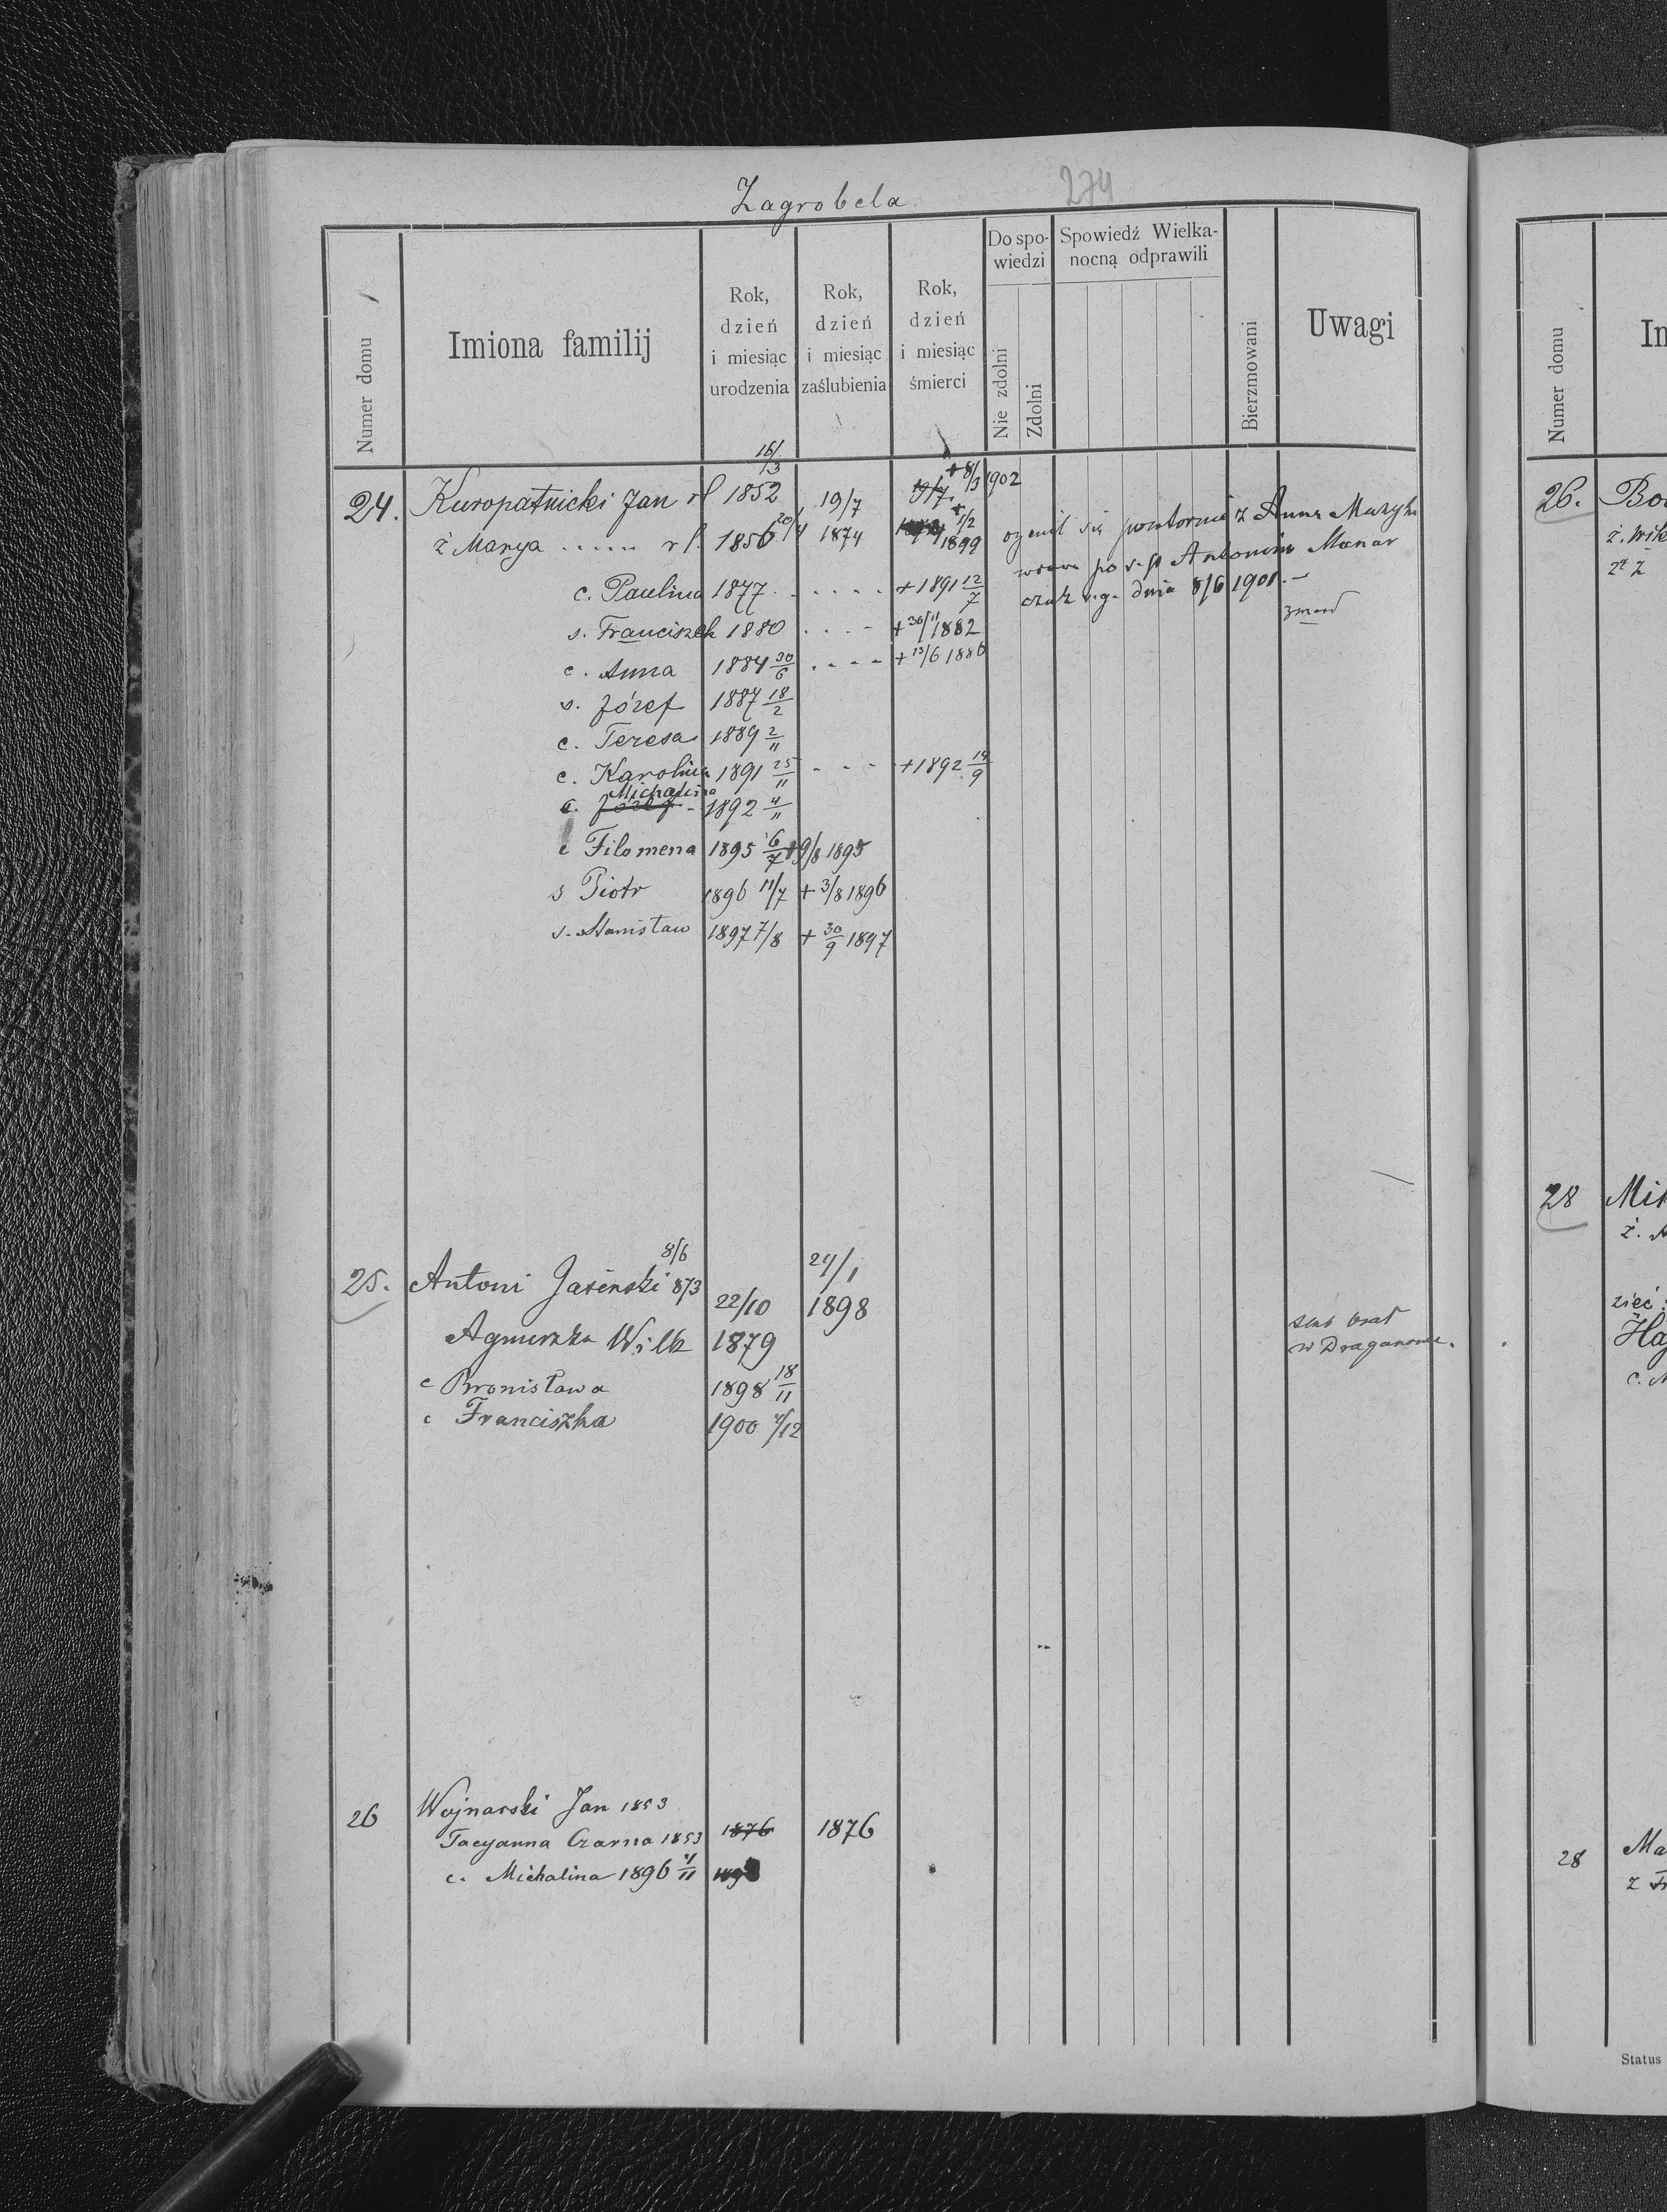 Zagrobela 274
Numer domu
Imiona familij
Rok, dzień i miesiąc urodzenia
Rok, dzień i miesiąc zaślubienia
Rok, dzień i miesiąc śmierci
Do spowiedzi
Nie zdolni
Zdolni
Spowiedź Wielkanocną odprawili
Bierzmowani
Uwagi
24. Kuropatnicki Jan rł 16/3 1852 19/7 19/7. + 8/3 1902
ż Marya ...... rł. 1856 20/4 1874 + 1/2 1899
ożenił się powtórnie z Anną
wdową po ś.p. Antonim
dnia 8/6 1901. —
c. Paulina 1877 . . . . . . + 1891 12/7
s. Franciszek 1880 . . . . + 30/11 1882
c. Anna 1884 30/6 . . . . + 13/6 1886
s. Józef 1887 18/2
c. Teresa 1889 2/11
c. Karolina 1891 25/11 . . . + 1892 14/9
Michalina
c. Józef - 1892 4/11
c Filomena 1895 6/7 + 9/8 1895
s Piotr 1896 11/7 + 3/8 1896
s. Stanisław 1897 7/8 + 30/9 1897
25. Antoni Jasinski 8/6 873 24/1
22/10 1898
Agnieszka Wilk 1879
w Draganowce.
c Bronisława 1898 18/11
c Franciszka 1900 4/12
26 Wojnarski Jan 1853
Tacyanna Czarna 1853 1876 1876
c. Michalina 1896 4/11
26. Bo
ż. Wik
2ª ż
28 Mik
ż.
zięć
Haj
c. M
28 Ma
ż Fr
Numer domu
Im
Status